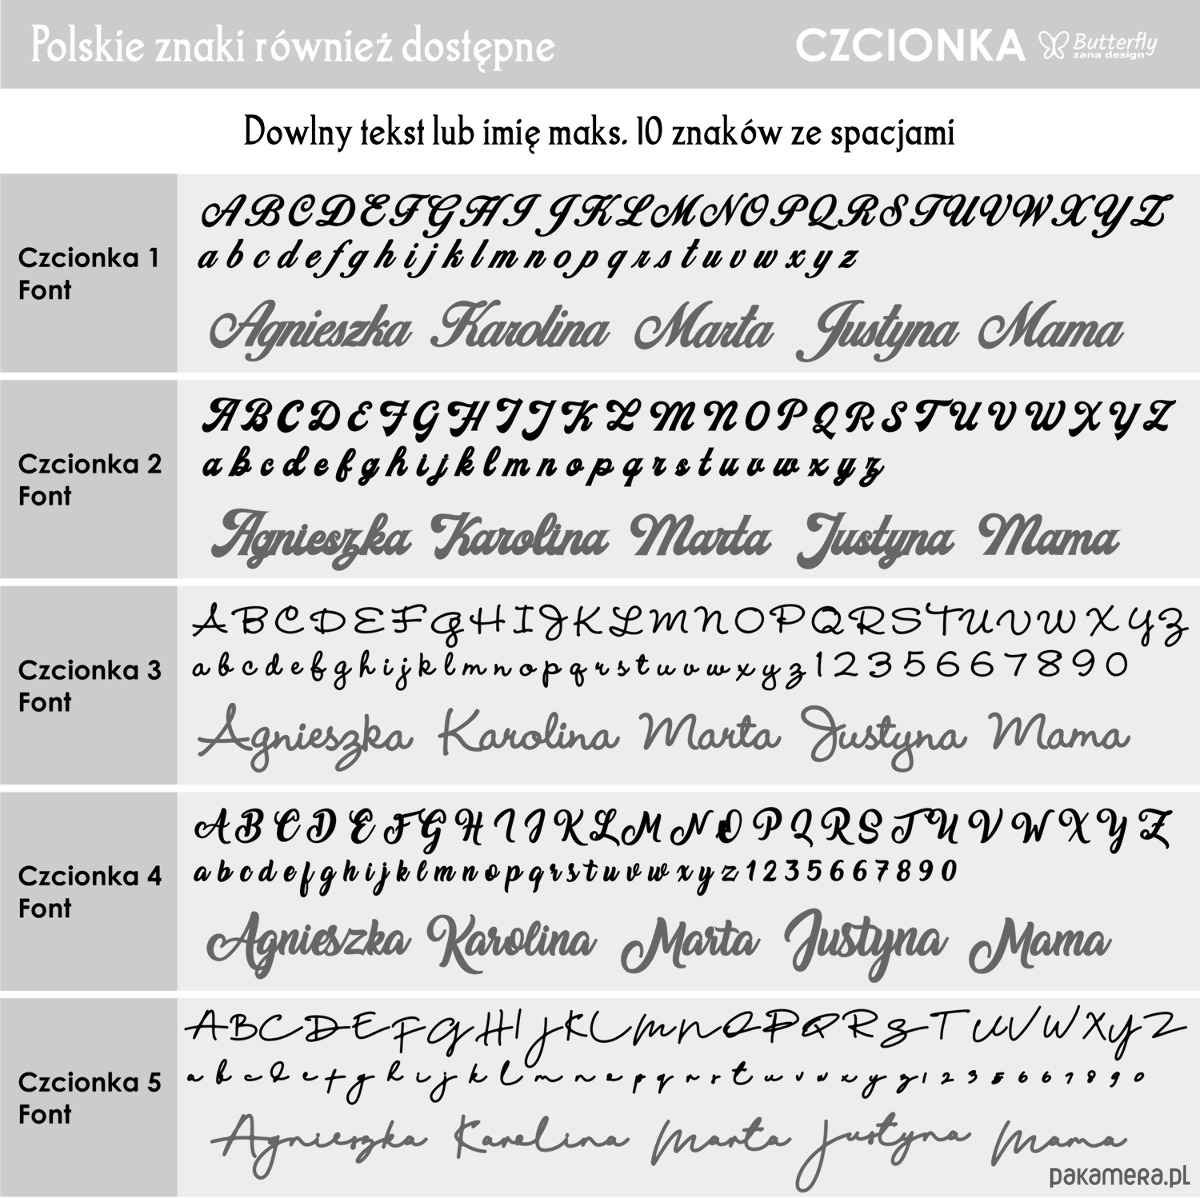 Polskie znaki również dostępne
CZCIONKA Butterfly
zana design
Dowlny tekst lub imię maks. 10 znaków ze spacjami
Czcionka 1
Font
ABCDEFGHIJKLMNOPQRSTUVWXYZ
abcdefghijklmnopqrstuvwxyz
Agnieszka Karolina Marta Justyna Mama
Czcionka 2
Font
ABCDEFGHIJKLMNOPQRSTUVWXYZ
abcdefghijklmnopqrstuvwxyz
Agnieszka Karolina Marta Justyna Mama
Czcionka 3
Font
ABCDEFGHIJKLMNOPQRSTUVWXYZ
abcdefghijklmnopqrstuvwxyz1235667890
Agnieszka Karolina Marta Justyna Mama
Czcionka 4
Font
ABCDEFGHIJKLMNOPQRSTUVWXYZ
abcdefghijklmnopqrstuvwxyz1235667890
Agnieszka Karolina Marta Justyna Mama
Czcionka 5
Font
ABCDEFGHIJKLMNOPQRSTUVWXYZ
abcdefghijklmnopqrstuvwxyz1235667890
Agnieszka Karolina Marta Justyna Mama
pakamera.pl